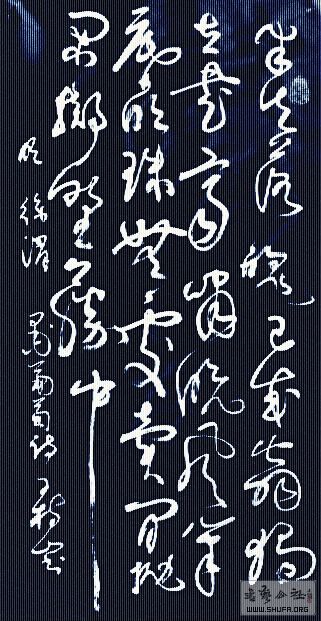 半生落魄已成翁獨
立書齋嘯晚風筆
底明珠無處賣閒拋
閒擲野藤中
明徐渭 墨葡萄詩
书艺公社
WWW.SHUFA.ORG